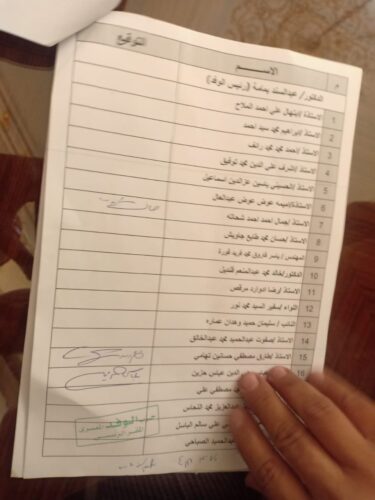 م الاســـم التوقيع
الدكتور/ عبدالسند يمامة (رئيس الوفد)
1 الاستاذة /ابتهال علي احمد الملاح
2 الاستاذ /ابراهيم محمد سيد احمد
3 الاستاذ /احمد محمد محمد رائف
4 الاستاذ /اشرف علي الدين محمد توفيق
5 الاستاذ /الحسيني ياسين عزالدين اسماعيل
6 الاستاذة/اميمه عوض عوض عبدالعال
7 الاستاذ /جمال احمد احمد شحاته
8 الاستاذ /حسان محمد طايع جاويش
9 المهندس /ياسر فاروق محمد فريد قورة
10 الدكتور/خالد محمد عبدالمنعم قنديل
11 الاستاذ /رضا ادوارد مرقص
12 اللواء /سفير السيد محمد نور
13 النائب /سليمان حميد وهدان عماره
14 الاستاذ /صفوت عبدالحميد محمد عبدالخالق
15 الاستاذ /طارق مصطفي حسانين تهامي
16 الدين عباس حزين
محمد مصطفي علي
عبدالعزيز محمد النحاس
علي سالم الباسل
عبدالحميد الصباحي
حزب الوفد المصرى
المقر الرئيسى